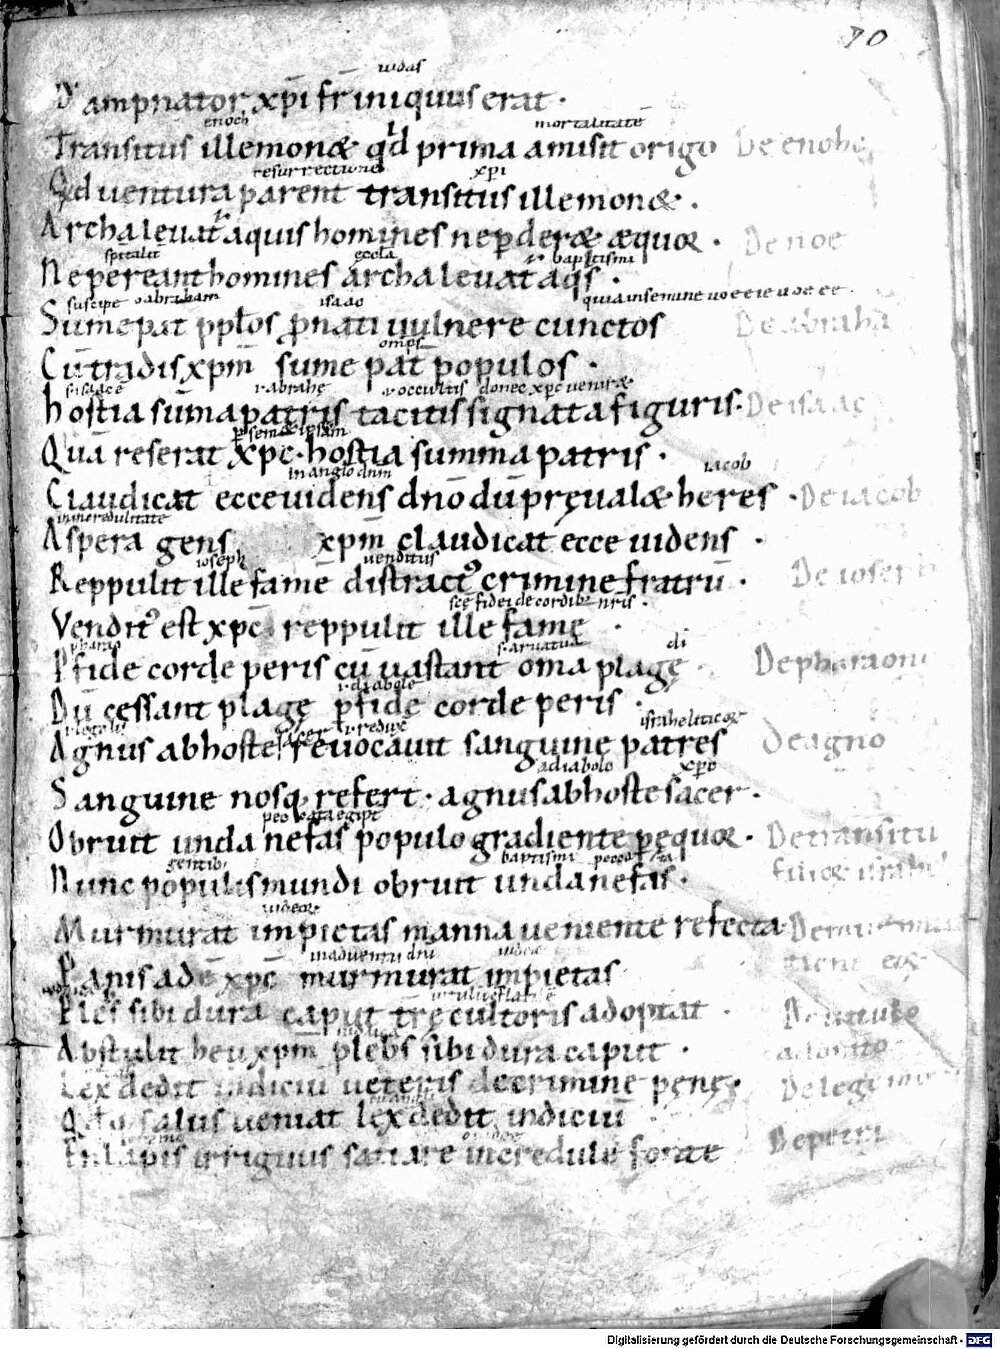 70
iudas
Dampnator xp̄i fr̄ iniquus erat ·
enoch mortalitate
Transitus ille monæ qd prima amisit origo De enohc
resurrectione xp̄i
Qd uentura parent transitus ille monæ ·
Archa leuat aquis homines ne perderæ æquor · De noe
sp̄italit̄ eccla baptismi
Ne pereant homines archa leuat aqs ·
suscipe abraham isaac quia in semine
Sume pat̄ pplos p̄nati uulnere cunctos De abraha
om̄ps
Cū tradis xp̄m sume pat̄ populos ·
abrahę occultis donec xp̄c ueniræ
hostia sūma patris tacitis signata figuris · De isaac
ipsam
Quā reserat xp̄c · hostia summa patris ·
in anglo dn̄m iacob
Claudicat ecce uidens dn̄o dū pręualæ heres · De iacob
incredulitate
Aspera gens xp̄m claudicat ecce uidens ·
ioseph uenditus
Reppulit ille famē distract' crimine fratrū · De ioseph
scę fidei de cordib' nr̄is ·
Vendit' est xp̄c reppulit ille famę ·
di
Pfide corde peris cū uastant om̄a plagę · De pharaon
diabole
Dū cessant plagę pfide corde peris ·
israheliticæ
Agnus ab hoste sacer reuocauit sanguine patres De agno
a diabolo xp̄c
Sanguine nosq· refert · agnus ab hoste sacer ·
Obruit unda nefas populo gradiente p̄ equor · De transitu
gentib' baptismi peccata
Nunc populis mundi obruit unda nefas · filior israhel
iudeor
Murmurat impietas manna ueniente refecta
in aduentu dn̄i
Panis adē xp̄c murmurat impietas
Plebs sibi dura caput trę cultoris adoptat · De uitulo
Abstulit heu xp̄m plebs sibi dura caput · adorato
Lex dedit indiciū ueteris de crimine pęnę · De legi
Qdo salus ueniat lex dedit indiciū
En lapis irriguus satiare incredule forte De petri
Digitalisierung gefördert durch die Deutsche Forschungsgemeinschaft - DFG